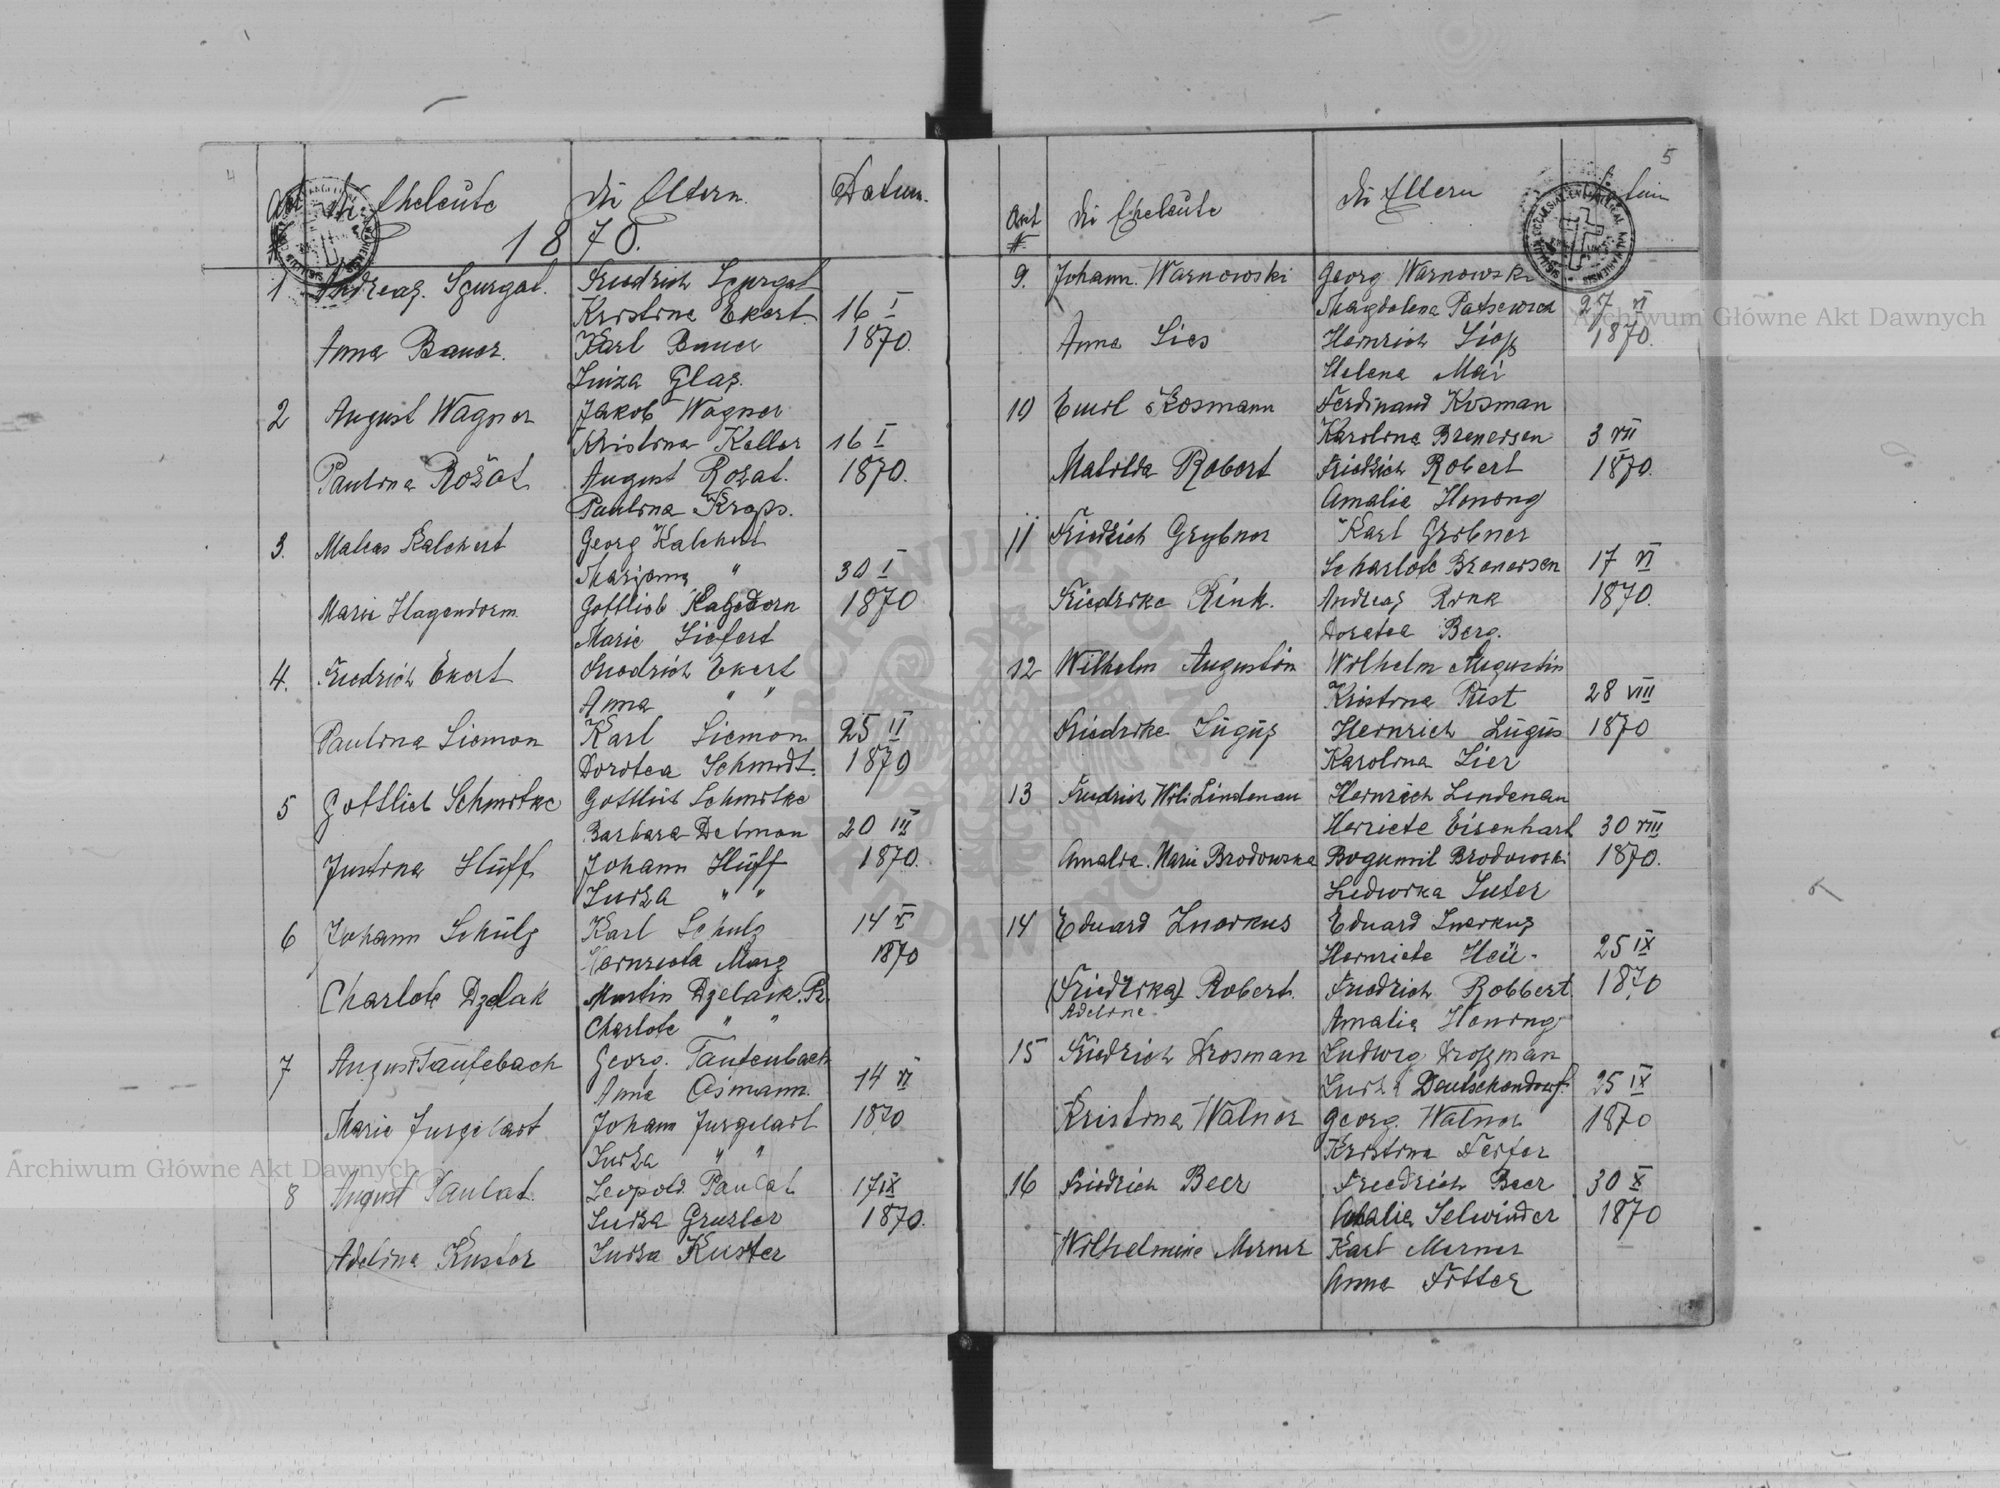 4
Akt
Die Eheleute
Die Eltern
Datum.
1870.
1 Andreas Szurgat. Friedrich Szurgat
Kristina Ekert 16 I
Anna Bauer. Karl Bauer 1870.
Luiza Glas.
2 August Wagner Jakob Wagner
Kristina Keller 16 I
Paulina Rožat August Rozat. 1870.
Paulina Kraps.
3. Mateas Kalchert Georg Kalchert
Marjanna " 30 I
Marie Hagendorm Gottlieb Hagedorn 1870
Marie Siefert
4. Friedrich Ekert Friedrich Ekert
Anna " "
Paulina Siemon Karl Siemon 25 II
Dorotea Schmidt. 1870
5 Gottlieb Schmitke Gottlieb Schmitke
Barbara Detman 20 III
Justina Hüff Johann Hüff 1870.
Luiza " "
6 Johann Schülz Karl Schulz 14 V
Henrieta Marz 1870
Charlote Dzelak Martin Dzelak. Pr.
Charlote " "
7 August Taufebach Georg. Tautenbach
Anna Osmann. 14 VI
Marie Jurgelait Johann Jurgelait 1870
Luiza " "
8 August Paulat Leopold Paulat 17 IX
Luiza Gruzler 1870.
Adelina Kustor Luiza Kuster
5
Akt
#
Die Eheleute
Die Eltern
9. Johann. Warnowski Georg Warnowski
Magdalena Patsewich 27 VI
Anna Lies Heinrich Liess 1870.
Helena Mai
10 Emil Kosmann Ferdinand Kosman
Karolina Brenersen 3 VII
Matilda Robert Friedrich Robert 1870.
Amalie Honong
11 Friedrich Grybner Karl Gribner
Scharlote Brenersen 17 VI
Friedrike Rink. Andreas Rink 1870.
Doratea Berg.
12 Wilhelm Augustin Wilhelm Augustin
Kristina Rüst 28 VIII
Friedrike Lügüs Heinrich Lügüs 1870
Karolina Lier
13 Friedrich Wil. Lindenau Heinrich Lindenau
Henriete Eisenhart 30 VIII
Amalia. Marie Brodowska Bogumil Brodowski 1870.
Ludwika Luter
14 Eduard Znorkus Eduard Snorkus
Henriete Heü. 25 IX
(Friedrika) Robert. Friedrich Robbert 1870
Adeline
Amalia Honing
15 Friedrich Drosman Ludwig Droszman
Luiza Deutschendorf. 25 IX
Kristina Walner Georg. Walner 1870
Kristina Feifer
16 Friedrich Beer Friedrich Beer 30 X
Amalia Selwinder 1870
Wilhelmine Merner Karl Merner
Anna Fitter
Archiwum Główne Akt Dawnych
Archiwum Główne Akt Dawnych